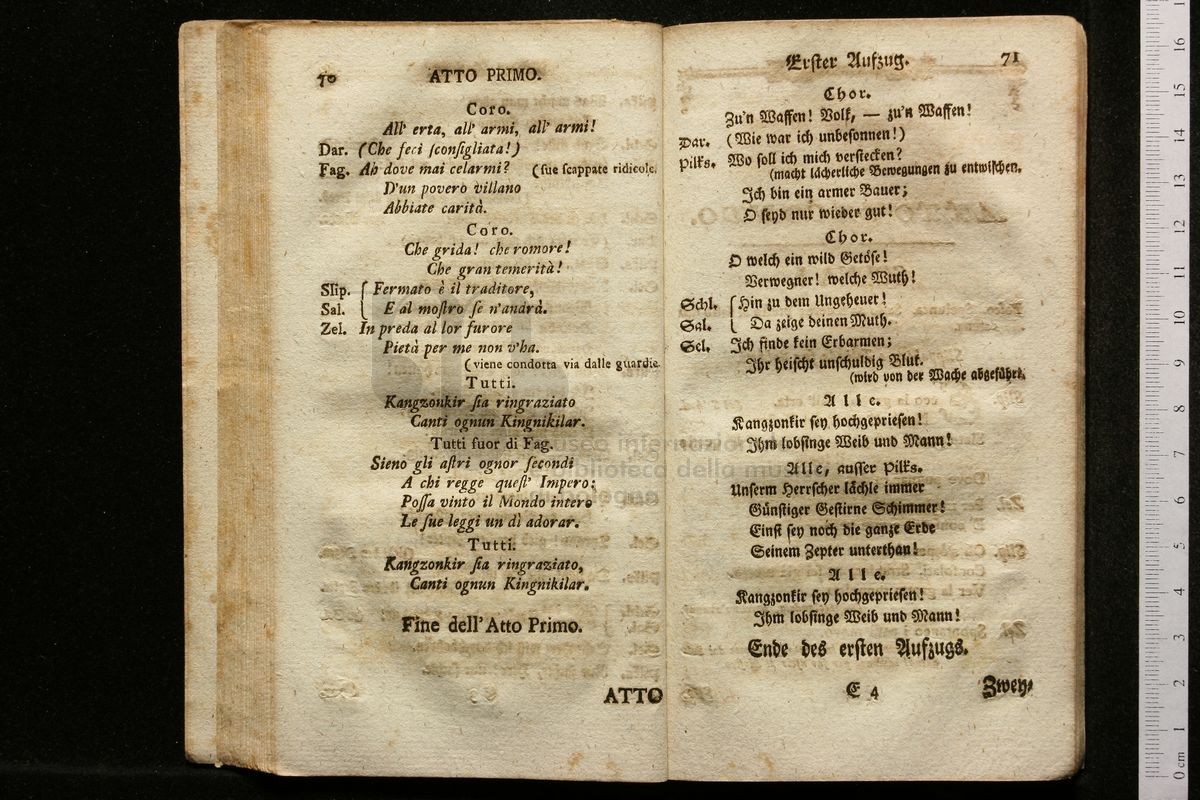 70 ATTO PRIMO.
Coro.
All' erta, all' armi, all' armi!
Dar. (Che feci ſconſigliata!)
Fag. Ah dove mai celarmi? (ſue ſcappate ridicole.
D'un povero villano
Abbiate carità.
Coro.
Che grida! che romore!
Che gran temerità!
Slip. Fermato è il traditore,
Sal. E al moſtro ſe n'andrà.
Zel. In preda al lor furore
Pietà per me non v'ha.
(viene condotta via dalle guardie.
Tutti.
Kangzonkir ſia ringraziato
Canti ognun Kingnikilar.
Tutti fuor di Fag.
Sieno gli aſtri ognor ſecondi
A chi regge queſt' Impero;
Poſſa vinto il Mondo intero
Le ſue leggi un dì adorar.
Tutti.
Kangzonkir ſia ringraziato,
Canti ognun Kingnikilar.
Fine dell' Atto Primo.
ATTO
Erſter Aufzug. 71
Chor.
Zu'n Waffen! Volk, — zu'n Waffen!
Dar. (Wie war ich unbeſonnen!)
Pilks. Wo ſoll ich mich verſtecken?
(macht lächerliche Bewegungen zu entwiſchen.
Ich bin ein armer Bauer;
O ſeyd nur wieder gut!
Chor.
O welch ein wild Getöſe!
Verwegner! welche Wuth!
Schl. Hin zu dem Ungeheuer!
Sal. Da zeige deinen Muth.
Sel. Ich finde kein Erbarmen;
Ihr heiſcht unſchuldig Blut.
(wird von der Wache abgeführt.
Alle.
Kangzonkir ſey hochgeprieſen!
Ihm lobſinge Weib und Mann!
Alle, auſſer Pilks.
Unſerm Herrſcher lächle immer
Günſtiger Geſtirne Schimmer!
Einſt ſey noch die ganze Erde
Seinem Zepter unterthan!
Alle.
Kangzonkir ſey hochgeprieſen!
Ihm lobſinge Weib und Mann!
Ende des erſten Aufzugs.
E 4 Zwey-